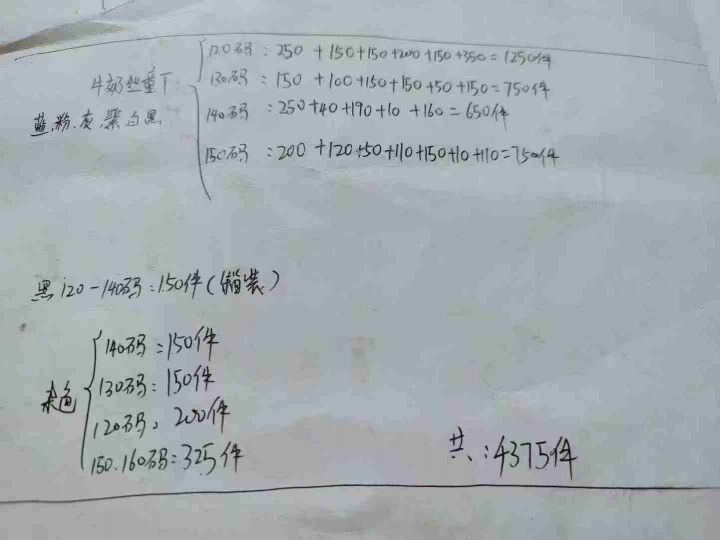 120码：250+150+150+200+150+350=1250件
牛奶丝童T：130码：150+100+150+150+50+150=750件
蓝.粉.灰.紫.白.黑.
140码：250+40+190+10+160=650件
150码：200+120+50+110+150+10+110=750件
黑120-140码：150件（箱装）
140码：150件
杂色
130码：150件
120码：200件
150.160码：325件
共：4375件